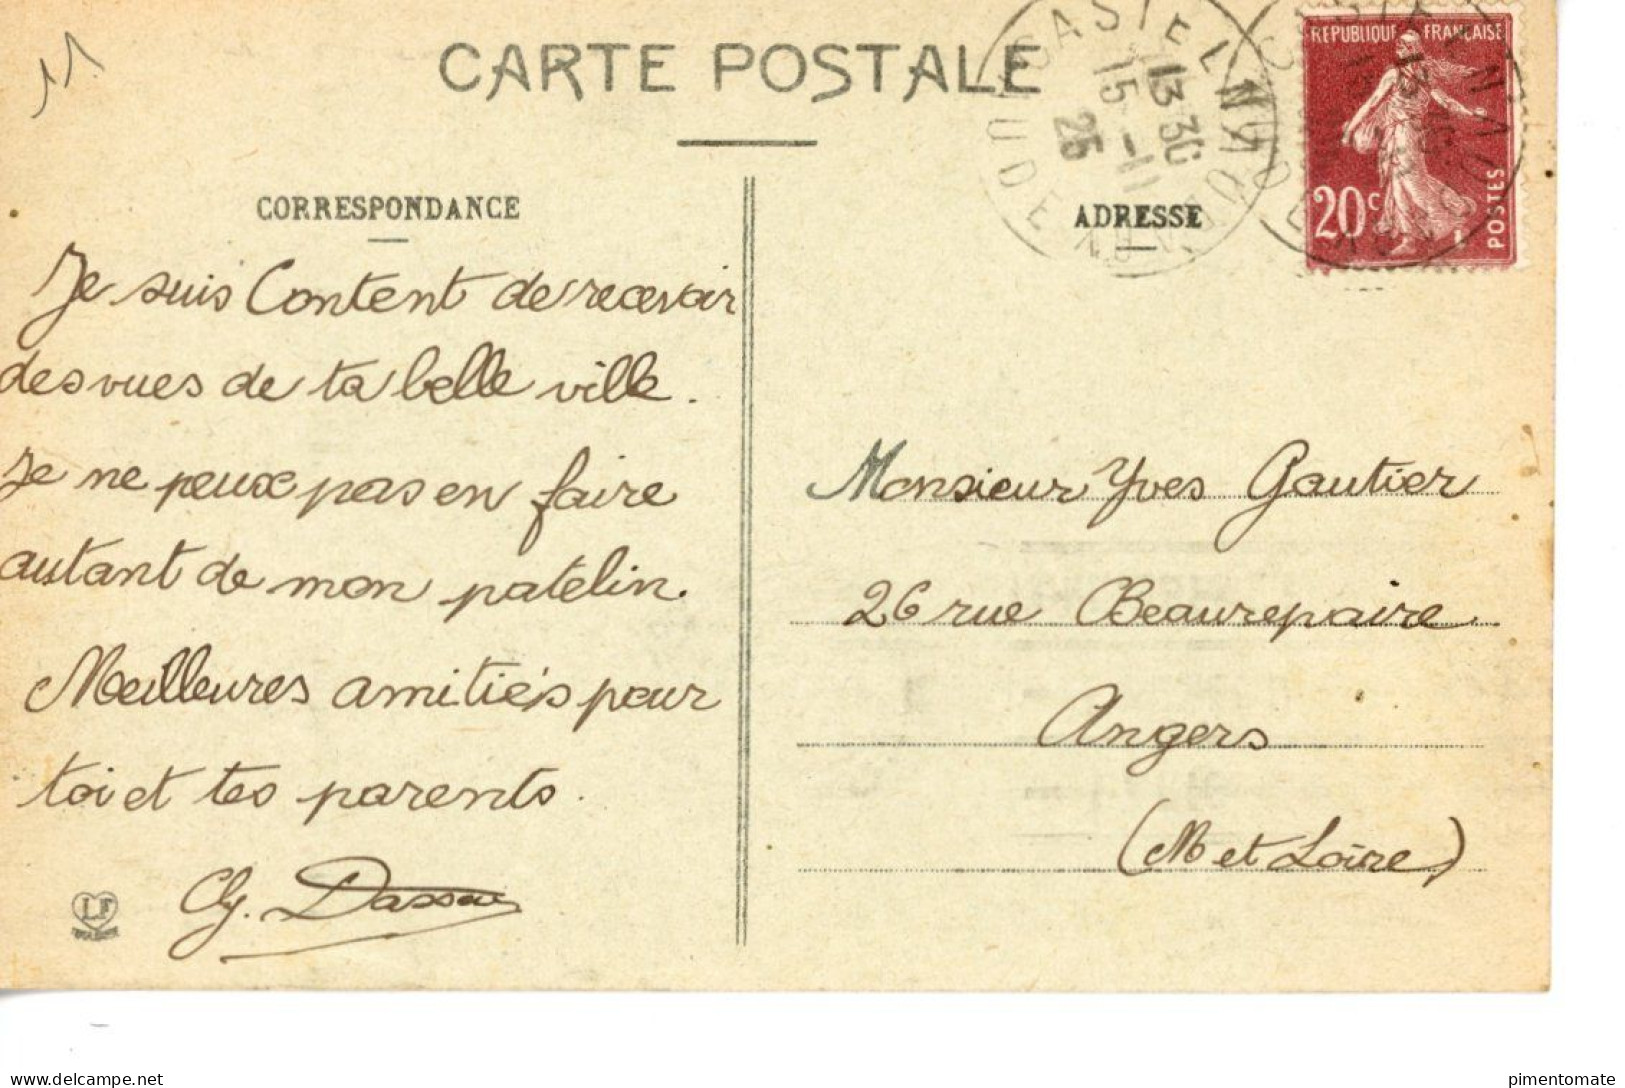 11
CARTE POSTALE
CASTELNAUDARY
AUDE
13 30
15 - 11
26
REPUBLIQUE FRANÇAISE
20c
POSTES
CORRESPONDANCE
ADRESSE
Je suis Content de recevoir
des vues de ta belle ville.
Je ne peux pas en faire
autant de mon patelin.
Meilleures amitiés pour
toi et tes parents.
Monsieur Yves Gautier
26 rue Beaurepaire
Angers
(M et Loire)
LF
delcampe.net
pimentomate